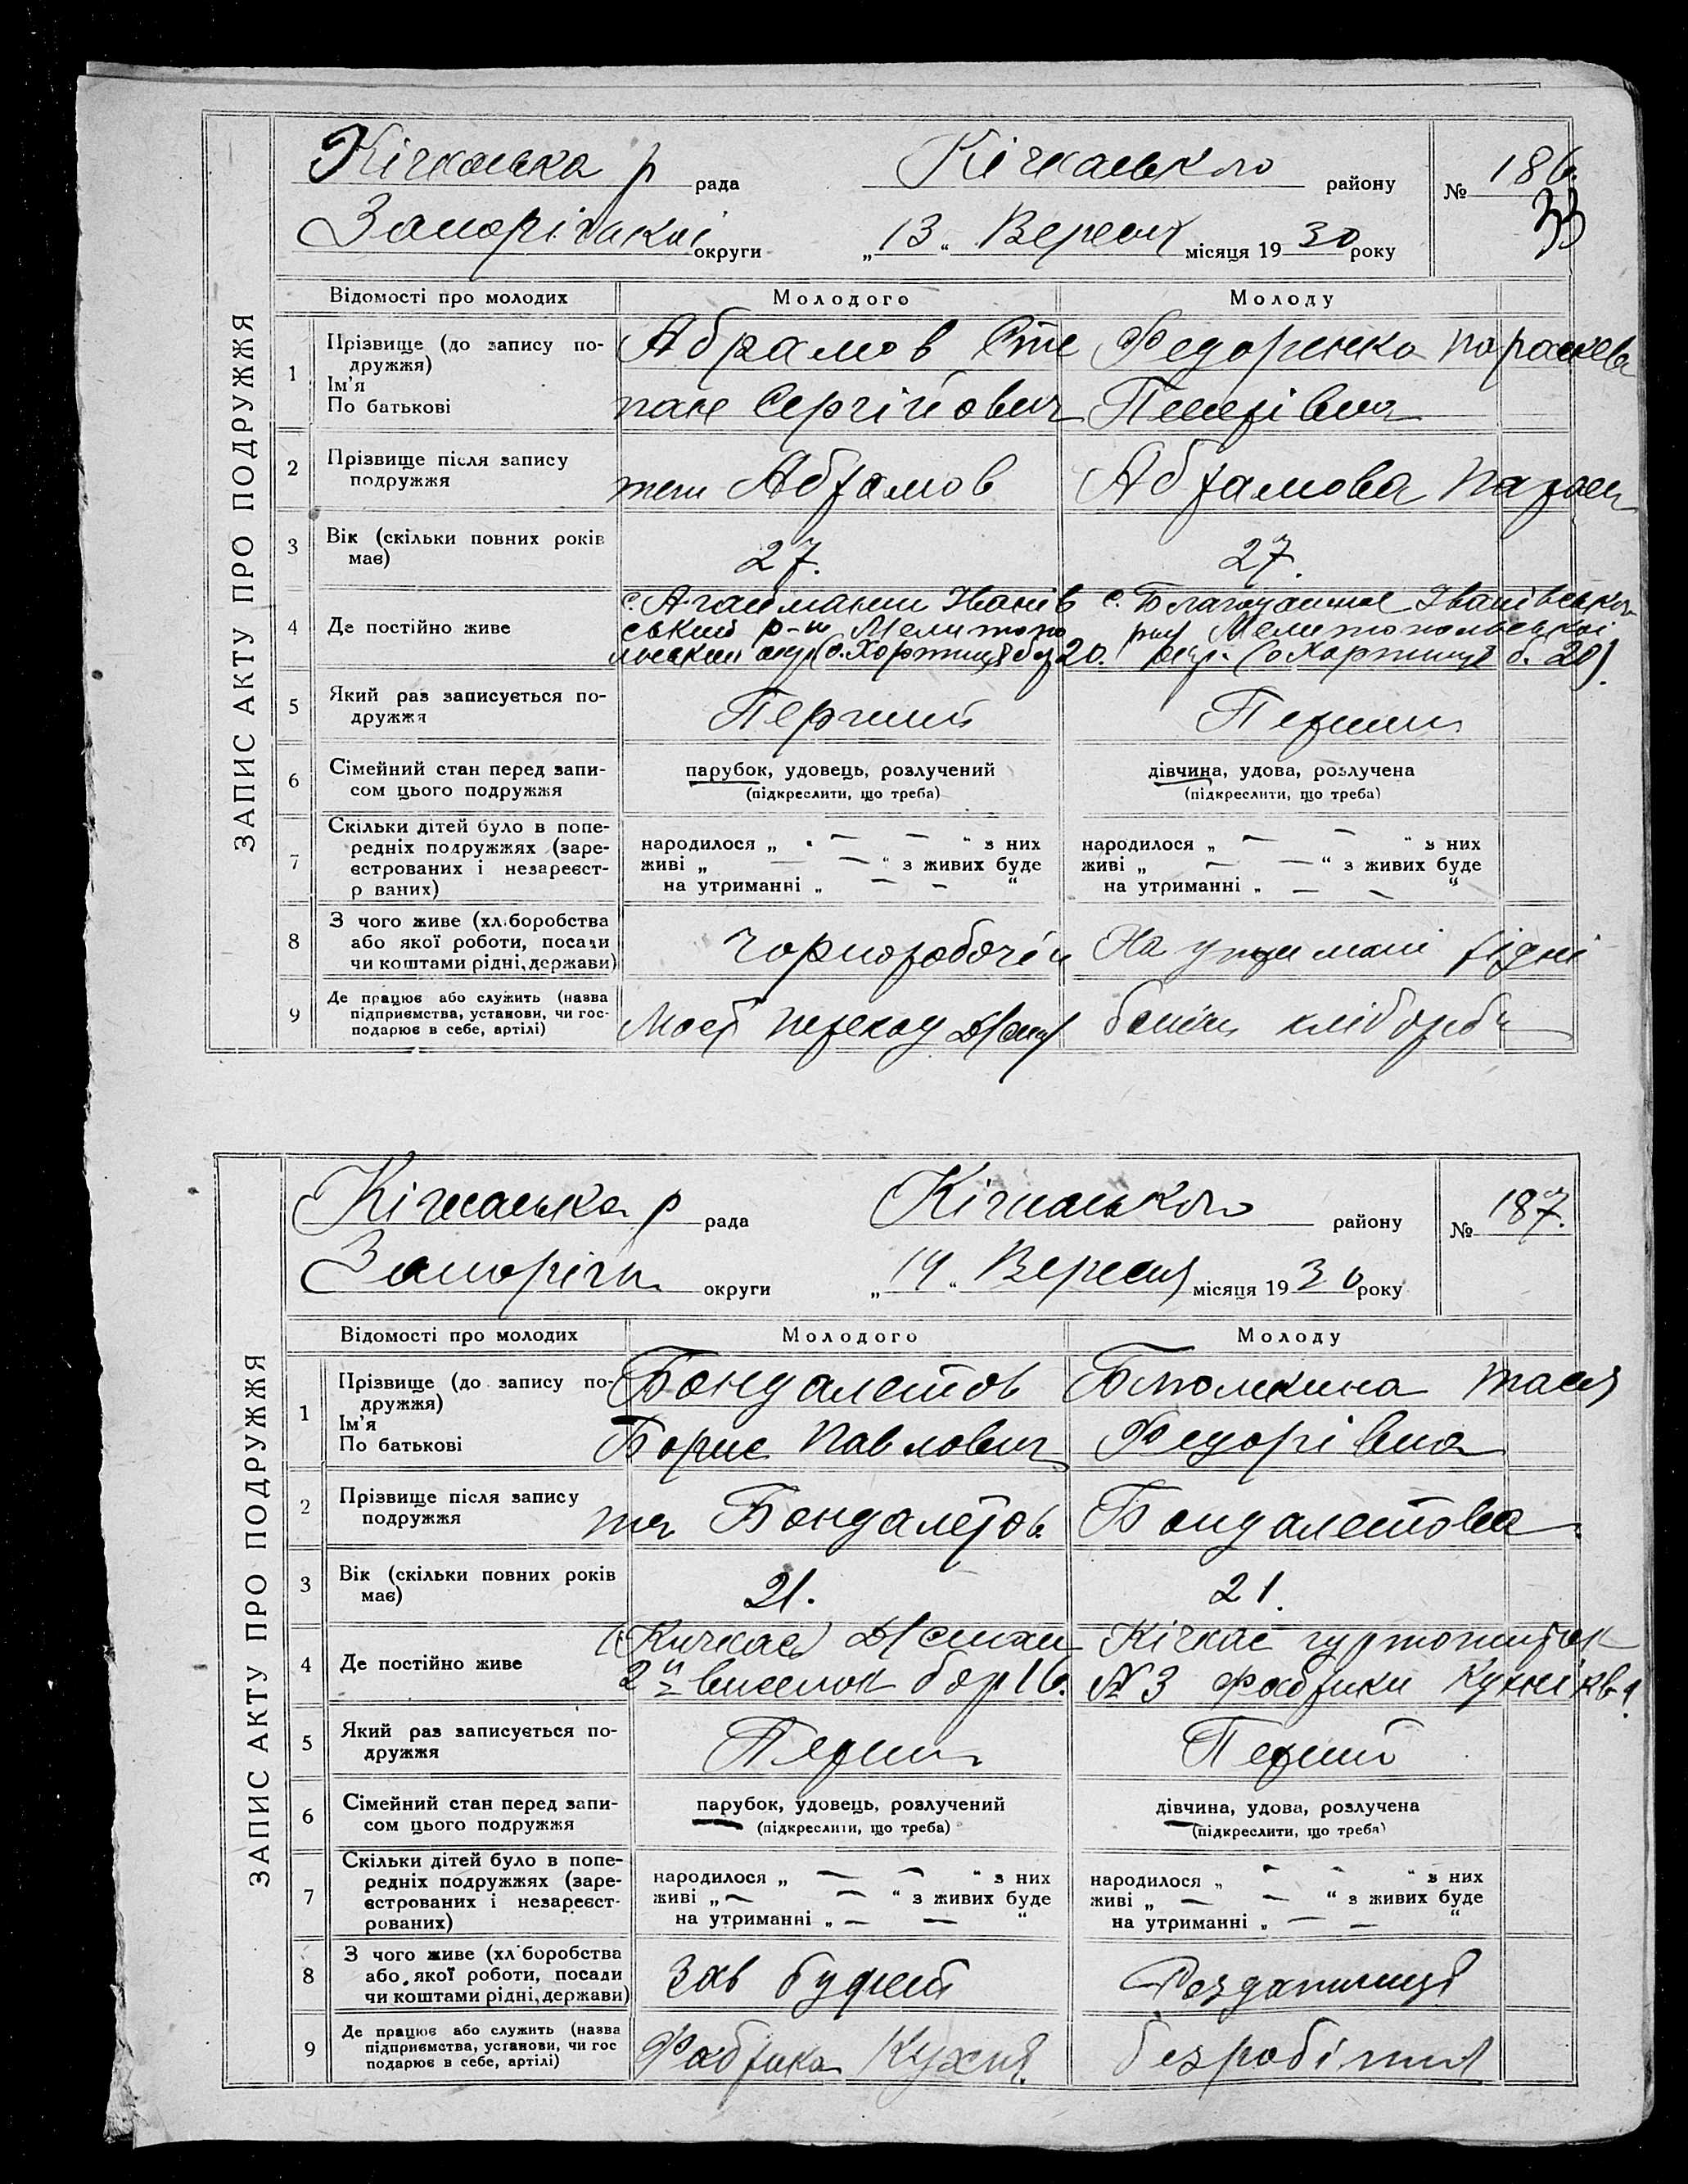 ЗАПИС АКТУ ПРО ПОДРУЖЖЯ
Кічкаська р рада Кічкаського району № 186.
33
Запоріжської округи „13“ Вересня місяця 1930 року
Відомості про молодих Молодого Молоду
1 Прізвище (до запису подружжя) Ім'я По батькові
Абрамов Сте Федоренко Параскева
пан Сергійович
2 Прізвище після запису подружжя
теж Абрамов Абрамова Параск
3 Вік (скільки повних років має)
27. 27.
4 Де постійно живе
с. Агаймани Іванів с. Благодатне Івановського
ський р-н Мелитопо рну Мелитопольської
льської окр (о. Хортиця б 20. окр. (о Хортиця б. 20).
5 Який раз записується подружжя
Перший Перший
6 Сімейний стан перед записом цього подружжя
парубок, удовець, розлучений дівчина, удова, розлучена
(підкреслити, що треба) (підкреслити, що треба)
7 Скільки дітей було в попередніх подружжях (зареєстрованих і незареєстр ваних)
народилося „ — — “ з них народилося „ — — “ з них
живі „ — — “ з живих буде живі „ — — “ з живих буде
на утриманні „ — — “ на утриманні „ — — “
8 З чого живе (хліборобства або якої роботи, посади чи коштами рідні, держави)
Чорноробочий На утримані рідні
9 Де працює або служить (назва підприємства, установи, чи господарює в себе, артілі)
Мост переход хлібороби
ЗАПИС АКТУ ПРО ПОДРУЖЖЯ
Кічкаська р рада Кічкаського району № 187.
Запоріжк округи „14“ Вересня місяця 1930 року
Відомості про молодих Молодого Молоду
1 Прізвище (до запису подружжя) Ім'я По батькові
Бондалетов Таєя
Борис Павлович Федорівна
2 Прізвище після запису подружжя
теж Бондалетов. Бондалетова.
3 Вік (скільки повних років має)
21. 21.
4 Де постійно живе
(Кичкас) Кічкас гуртожиток
2й виселок бар 16. № 3 Фабрики Кухні кв 1
5 Який раз записується подружжя
Перший Перший
6 Сімейний стан перед записом цього подружжя
парубок, удовець, розлучений дівчина, удова, розлучена
(підкреслити, що треба) (підкреслити, що треба)
7 Скільки дітей було в попередніх подружжях (зареєстрованих і незареєстрованих)
народилося „ — — “ з них народилося „ — — “ з них
живі „ — — “ з живих буде живі „ — — “ з живих буде
на утриманні „ — — “ на утриманні „ — — “
8 З чого живе (хліборобства або якої роботи, посади чи коштами рідні, держави)
Зав буфет Роздатчиця
9 Де працює або служить (назва підприємства, установи, чи господарює в себе, артілі)
Фабрика Кухня. безробітня